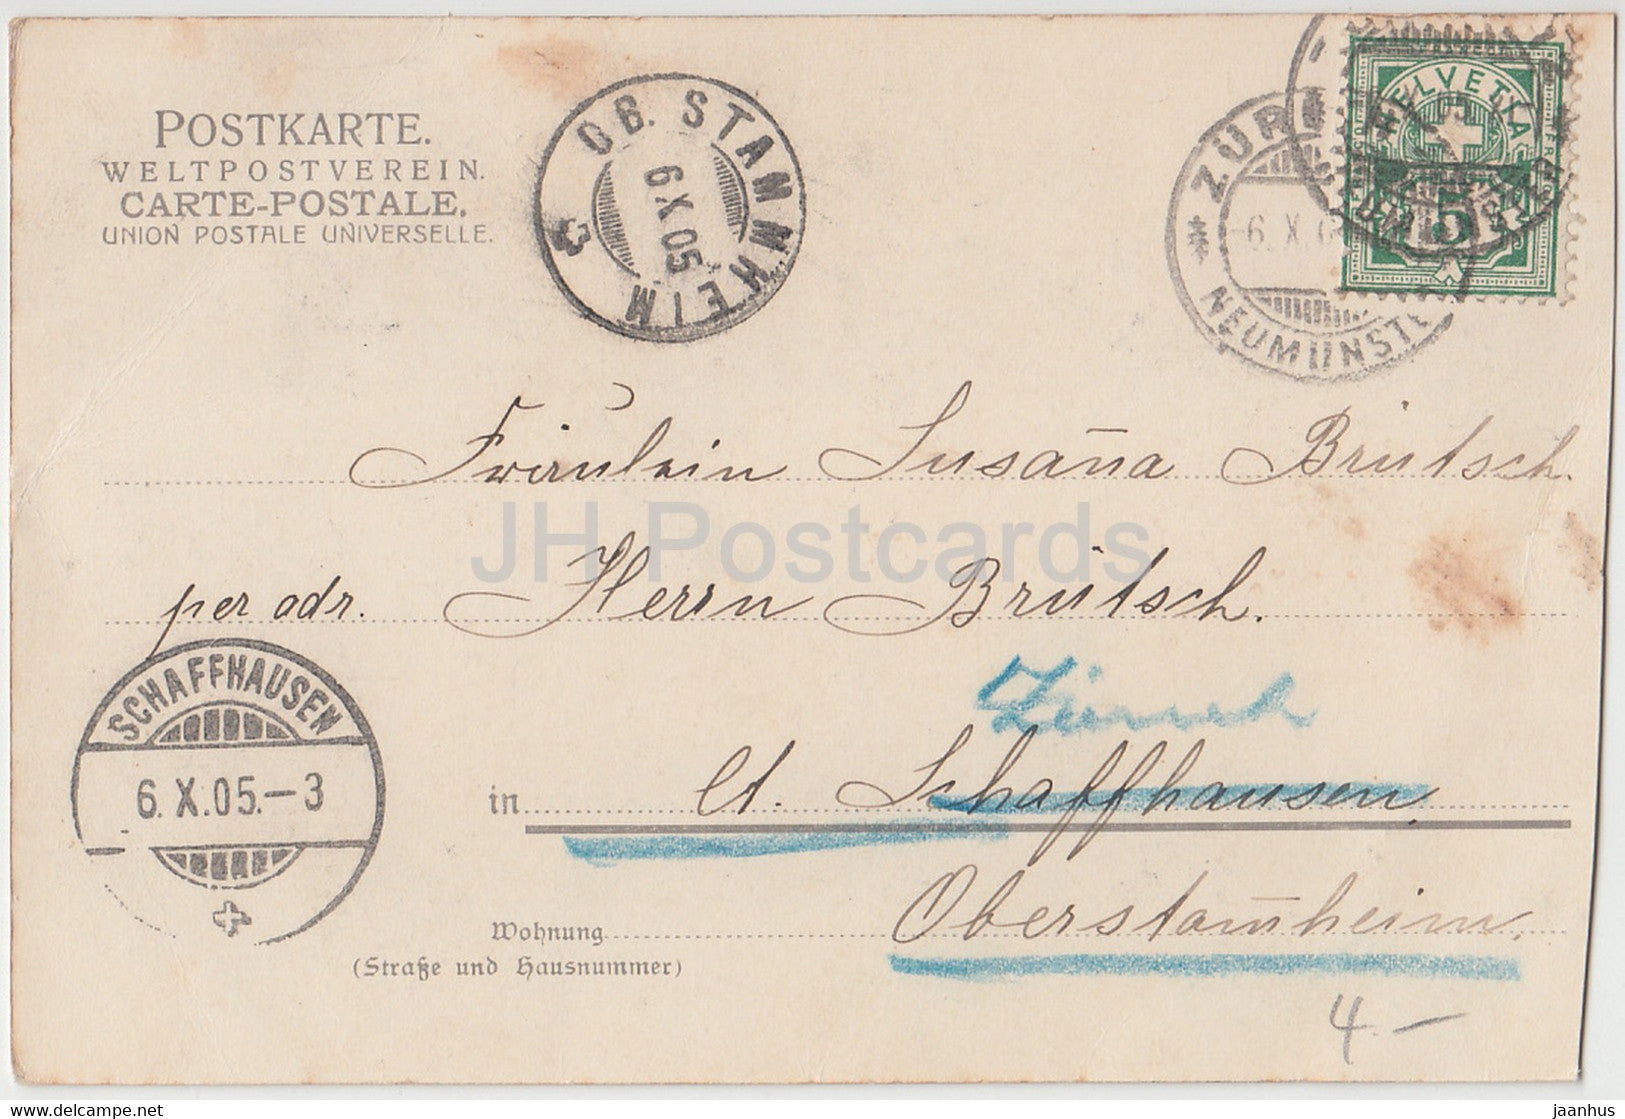 POSTKARTE.
WELTPOSTVEREIN.
CARTE-POSTALE.
UNION POSTALE UNIVERSELLE.
OB. STAMMHEIM
6 X 05
ZÜRI
6. X. 0
NEUMÜNST
HELVETIA
5
Fräulein Susaña Brütsch.
per adr. Herrn Brütsch.
JH Postcards
SCHAFFHAUSEN
6. X. 05.-3
Zürich
in Ct. Schaffhausen
Oberstam̄heim.
Wohnung
(Straße und Hausnummer)
4.-
akpool - delcampe.net